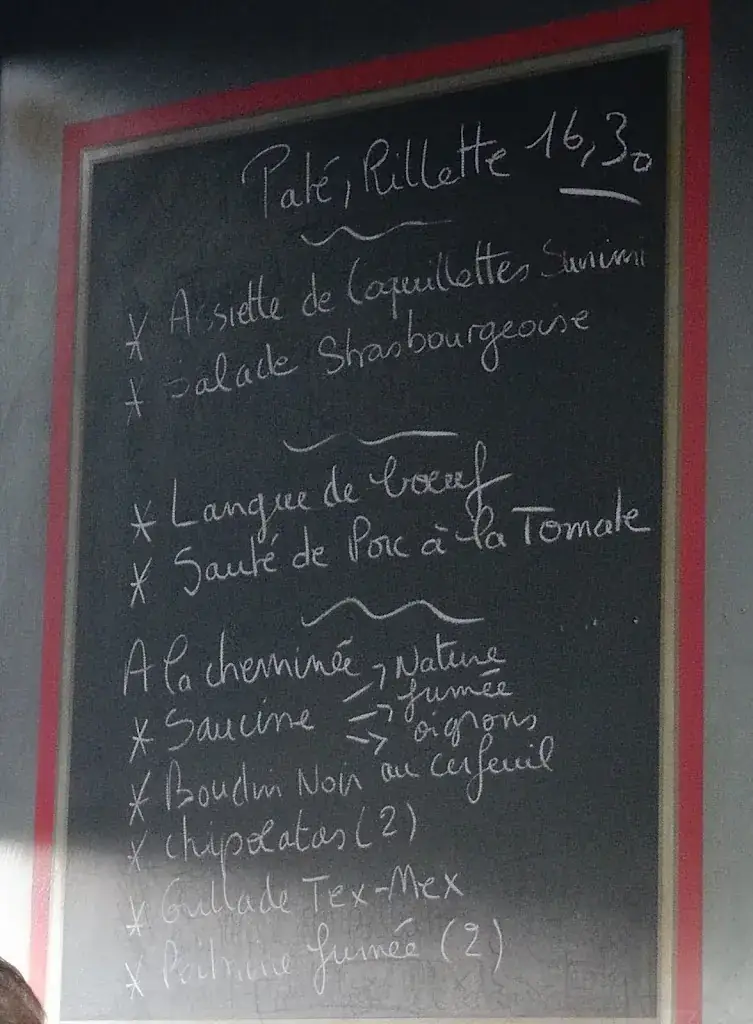 Paté, Rillette 16,30
* Assiette de Coquillettes Surimi
* Salade Strasbourgeoise
* Langue de boeuf
* Sauté de Porc à la Tomate
A la cheminée
* Saucisse → Nature
→ fumée
→ oignons
* Boudin Noir au cerfeuil
* Chipolatas (2)
* Grillade Tex-Mex
* Poitrine fumée (2)